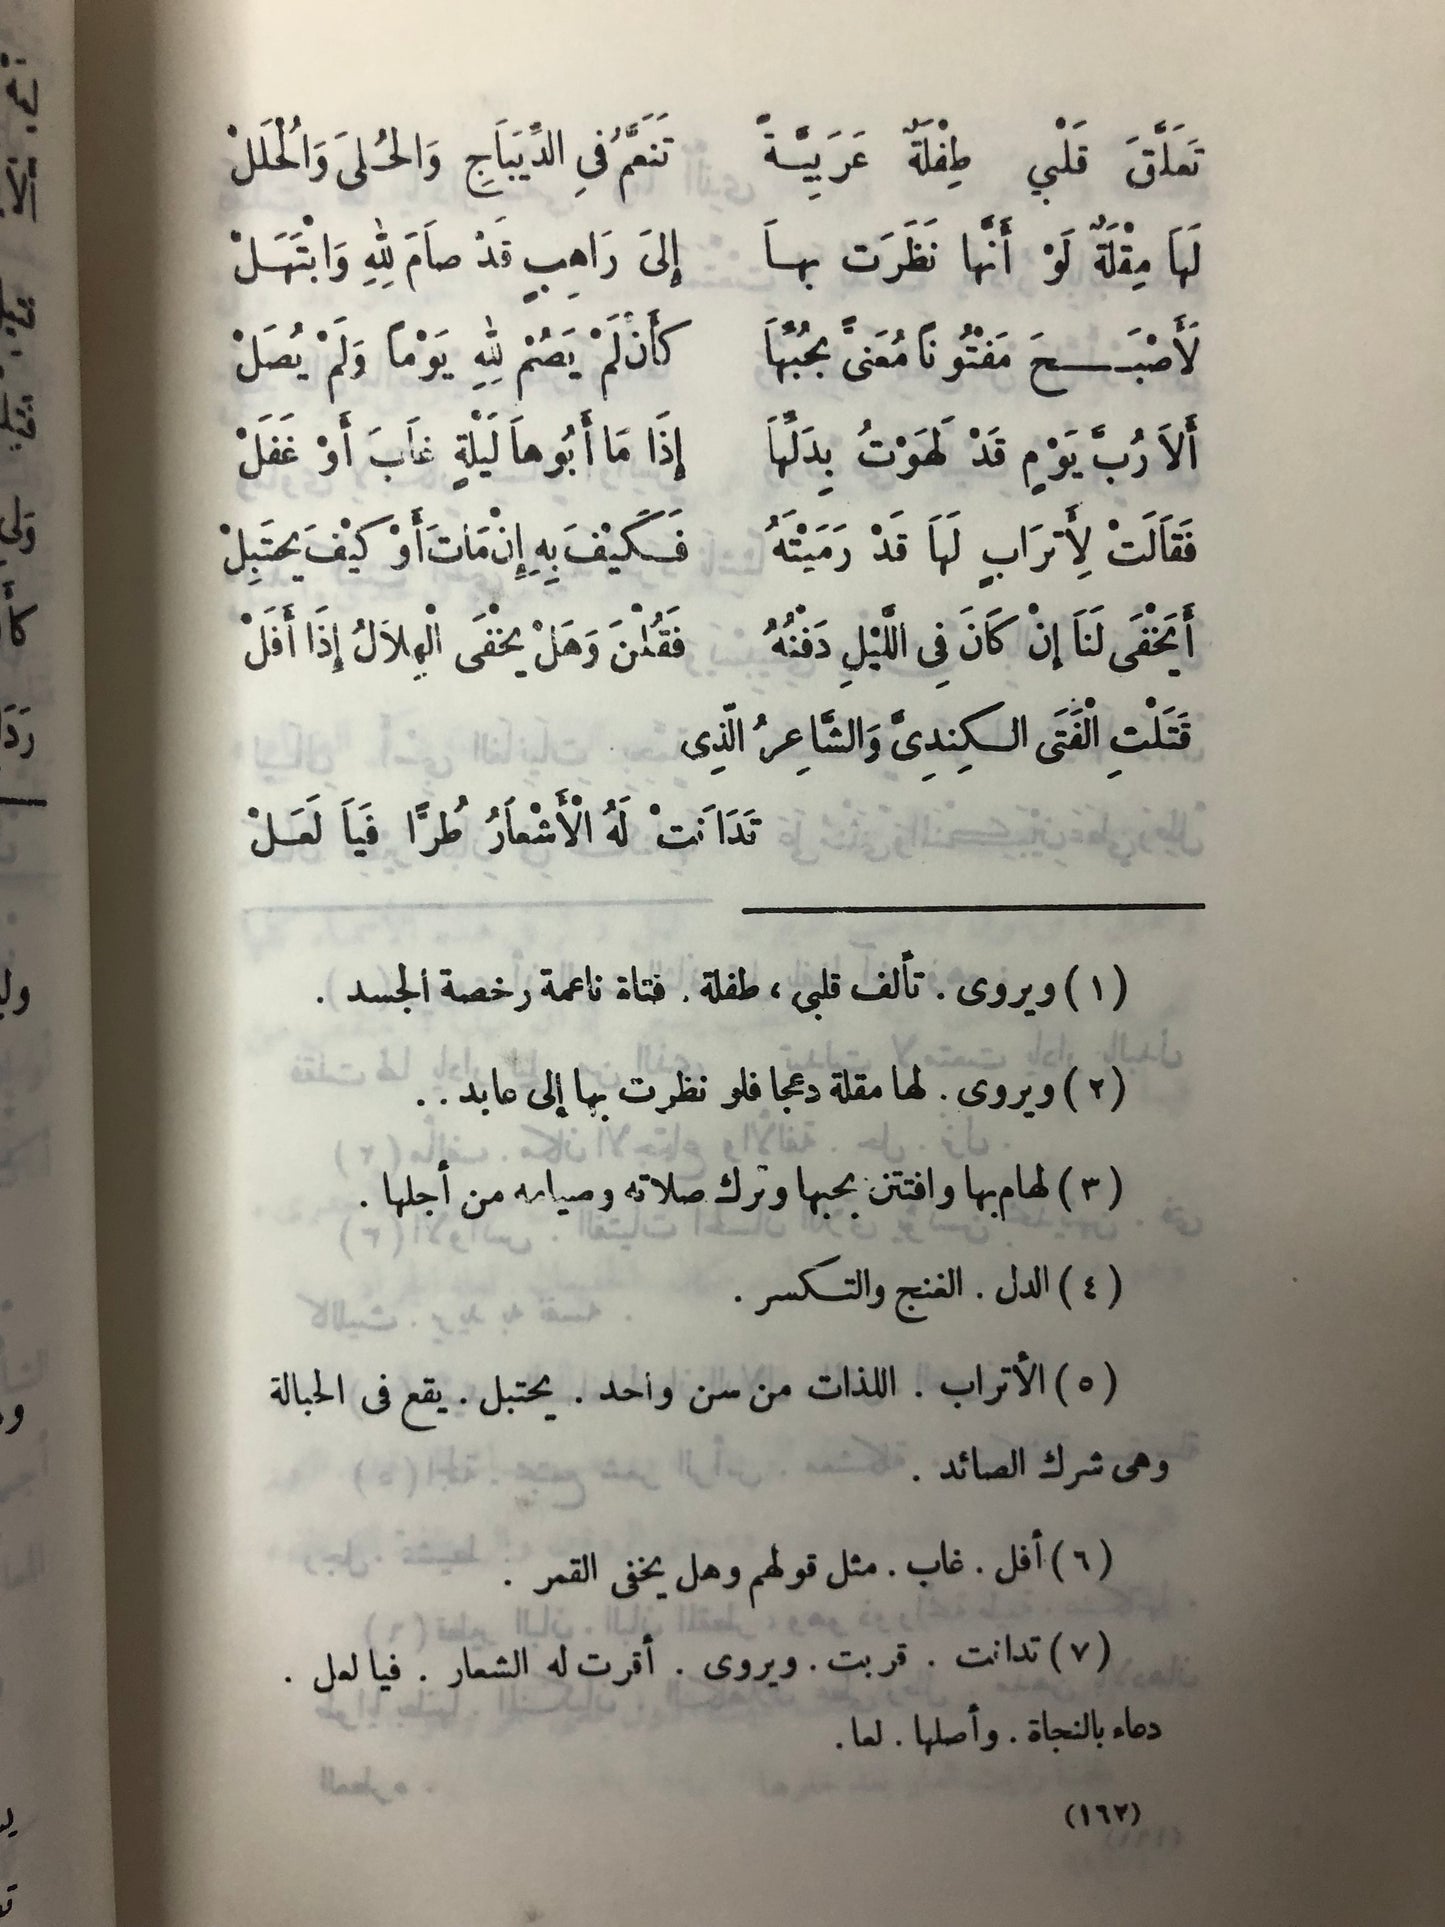 تَعَلَّقَ قَلْبي طِفْلَةً عَرَبِيَّةً تَنَعَّمُ فيِ الدِّيبَاَجِ وَالحُلىَ وَاُلْحُلَلْ
لَهاَ مِقْلَةٌ لَوْ أَنَّها نَظَرَت بهاَ إِلىَ رَاهِبٍ قَدْ صاَمَ لِلهِ وَابْتَهَلْ
لَأَصْبَحَ مَفْتُوناً مُعَنىًّ بحُبِّهاَ كَأَن لَمْ يَصُمْ لِلهِ يَوْماً وَلَمْ يُصَلْ
أَلاَ رُبَّ يَوْمٍ قَدْ لَهَوْتُ بِدَلِّهاَ إِذَا مَا أَبُوهاَ لَيْلَةٍ غاَبَ أَوْ غَفَلْ
فَقاَلَتْ لِأَترَابٍ لَهاَ قَدْ رَمَيْتَهُ فَكَيْفَ بِهِ إِنْ مَاتَ أَوْ كَيْفَ يحتَبِلْ
أَيَخْفَى لَناَ إِنْ كَانَ فِي اللَّيْلِ دَفْنُهُ فَقُلْنَ وَهَلْ يخْفَى الْهِلاَلُ إِذَا أَفَلْ
قَتَلْتِ الْفَتَى الكِندِىَّ وَالشَّاعِرُ الّذِى
تَدَانَتْ لَهُ الْأَشْعاَرُ طُرًّا فَياَ لَعَلْ
(١) ويروى . تألف قلبي ، طفلة . فتاة ناعمة رخصة الجسد .
(٢) ويروى . لها مقلة دعجا فلو نظرت بها إلى عابد . .
(٣) لهام بها وافتتن بحبها وترك صلاته وصيامه من أجلها .
(٤) الدل . الغنج والتكسر .
(٥) الأتراب . اللذات من سن واحد . يحتبل . يقع فى الحبالة
وهى شرك الصائد .
(٦) أفل . غاب . مثل قولهم وهل يخفى القمر .
(٧) تدانت . قربت . ويروى . أقرت له الشعار . فيا لعل .
دعاء بالنجاة . وأصلها . لعا .
(١٦٢)